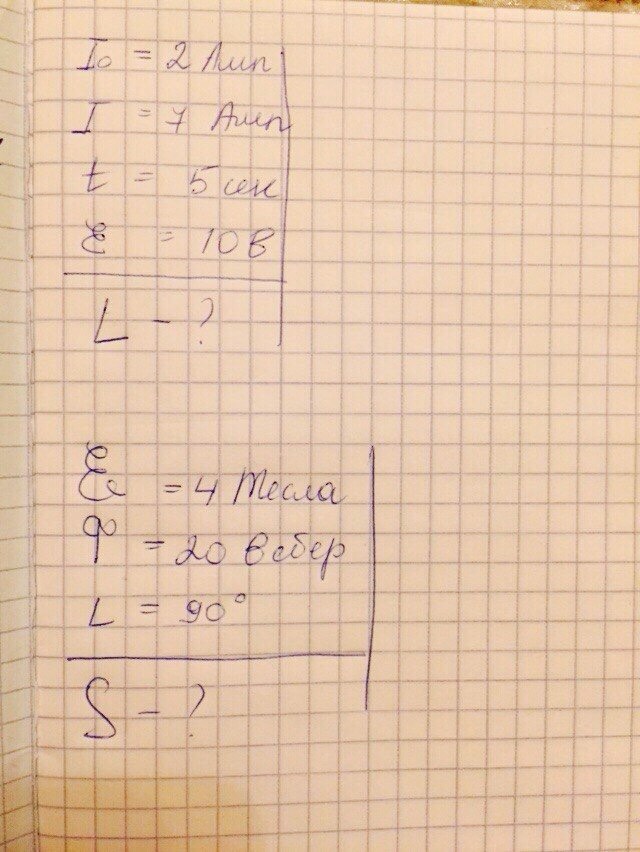 I₀ = 2 Амп
I = 7 Амп
t = 5 сек
Ɛ = 10 В
L - ?
Ɛ = 4 Тесла
Ф = 20 Вебер
L = 90°
S - ?